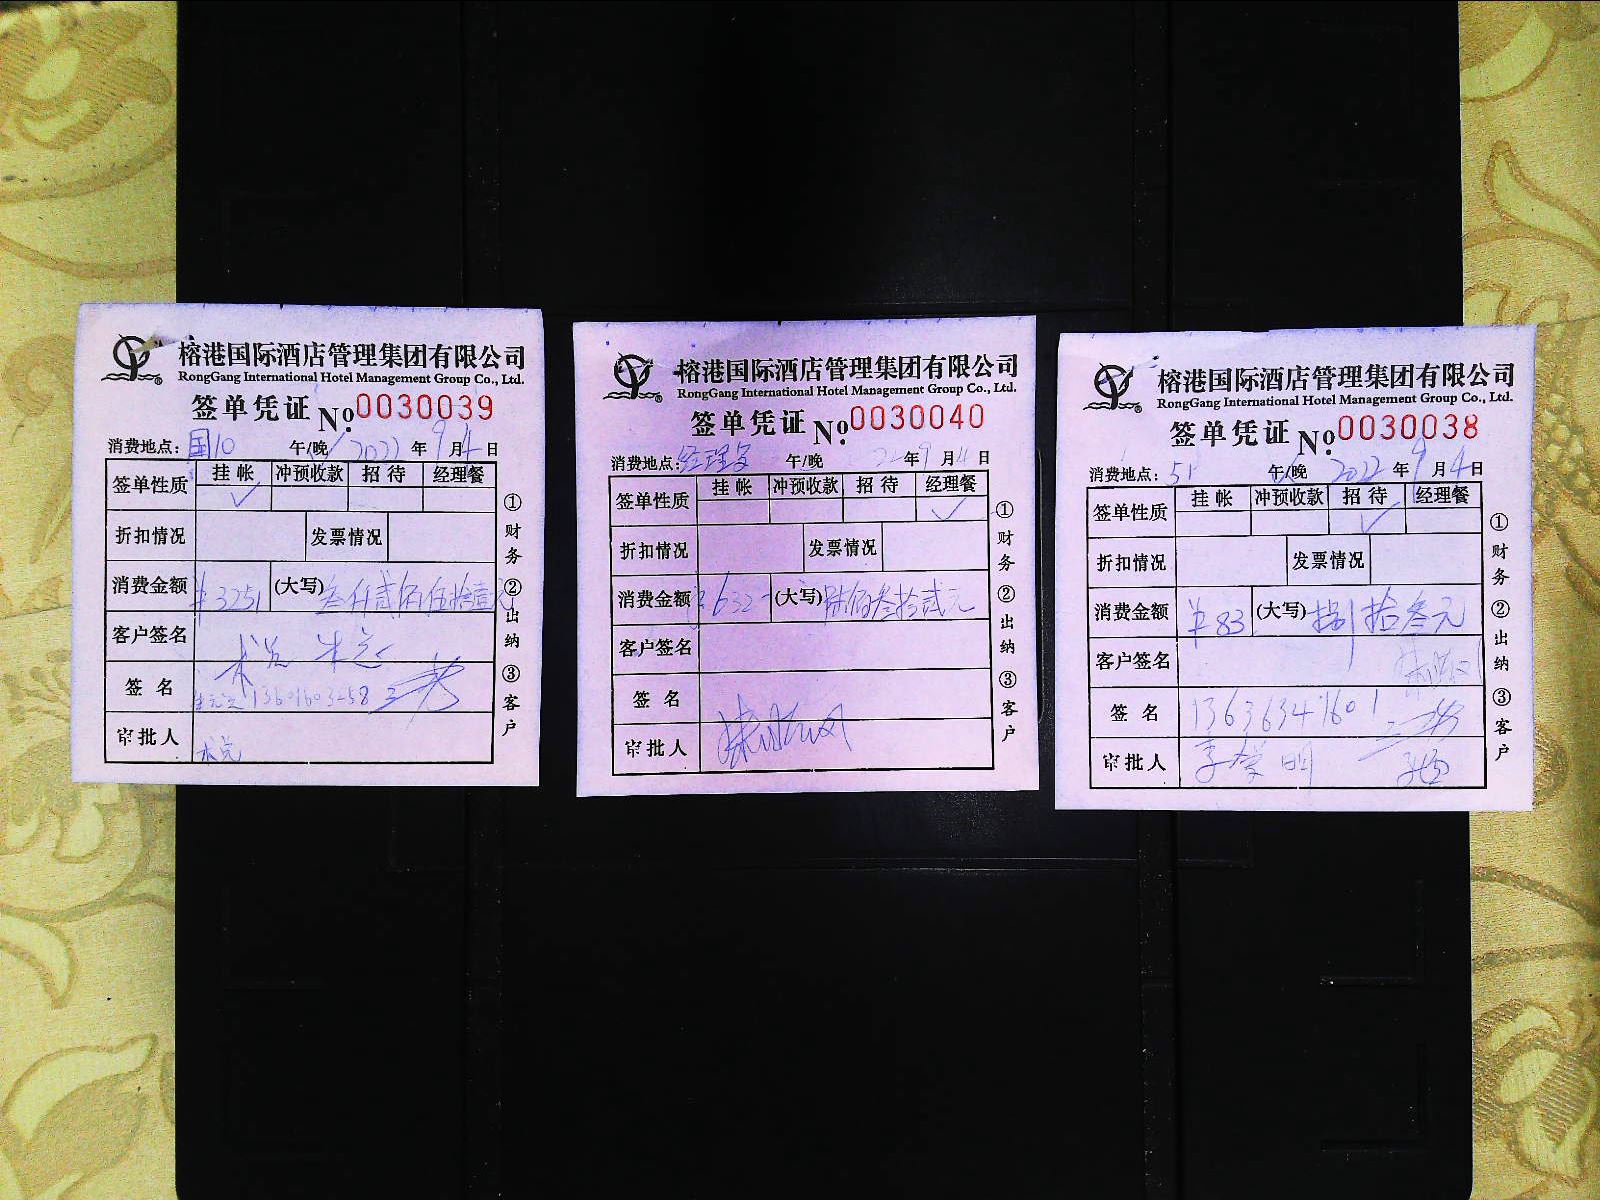 榕港国际酒店管理集团有限公司
RongGang International Hotel Management Group Co., Ltd.
签单凭证 No. 0030039
消费地点: 国10 午/晚 2022 年 9 月 4 日
签单性质 挂帐 冲预收款 招待 经理餐
✓
折扣情况 发票情况
消费金额 ¥3251 (大写) 叁仟贰佰伍拾壹元
客户签名
签名 13601603258
审批人
①财务 ②出纳 ③客户
榕港国际酒店管理集团有限公司
RongGang International Hotel Management Group Co., Ltd.
签单凭证 No. 0030040
消费地点: 经理 午/晚 22 年 9 月 4 日
签单性质 挂帐 冲预收款 招待 经理餐
✓
折扣情况 发票情况
消费金额 ¥632- (大写) 陆佰叁拾贰元
客户签名
签名
审批人
①财务 ②出纳 ③客户
榕港国际酒店管理集团有限公司
RongGang International Hotel Management Group Co., Ltd.
签单凭证 No. 0030038
消费地点: 51 午/晚 2022 年 9 月 4 日
签单性质 挂帐 冲预收款 招待 经理餐
✓
折扣情况 发票情况
消费金额 ¥83 (大写) 捌拾叁元
客户签名
签名 13636341601
审批人 李学明
①财务 ②出纳 ③客户